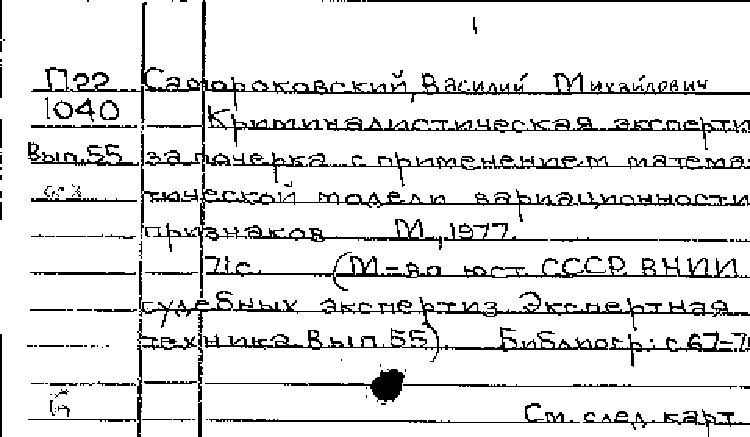 1
П22 Василий Михайлович
1040 Криминалистическая эксперти
Вып.55 за почерка с применением матема-
тической модели вариационности
признаков М., 1977.
71с. (М-во юст. СССР. ВНИИ
судебных экспертиз. Экспертная
техника. Вып. 55). Библиогр.: с.67-7
Б
См. след. карт.